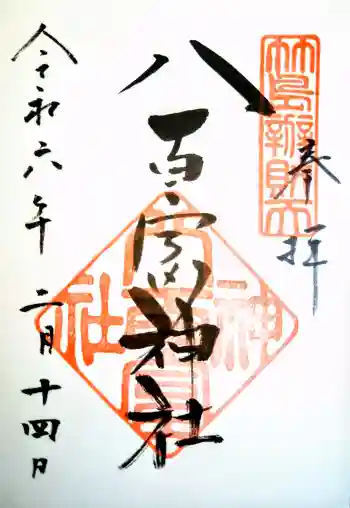 竹島辨財天
奉拝
八百富神社
八百富神社
令和六年二月十四日